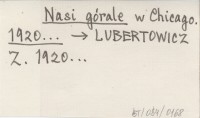 Nasi górale w Chicago.
1920... → LUBERTOWICZ
Z. 1920...
BT/084/0168